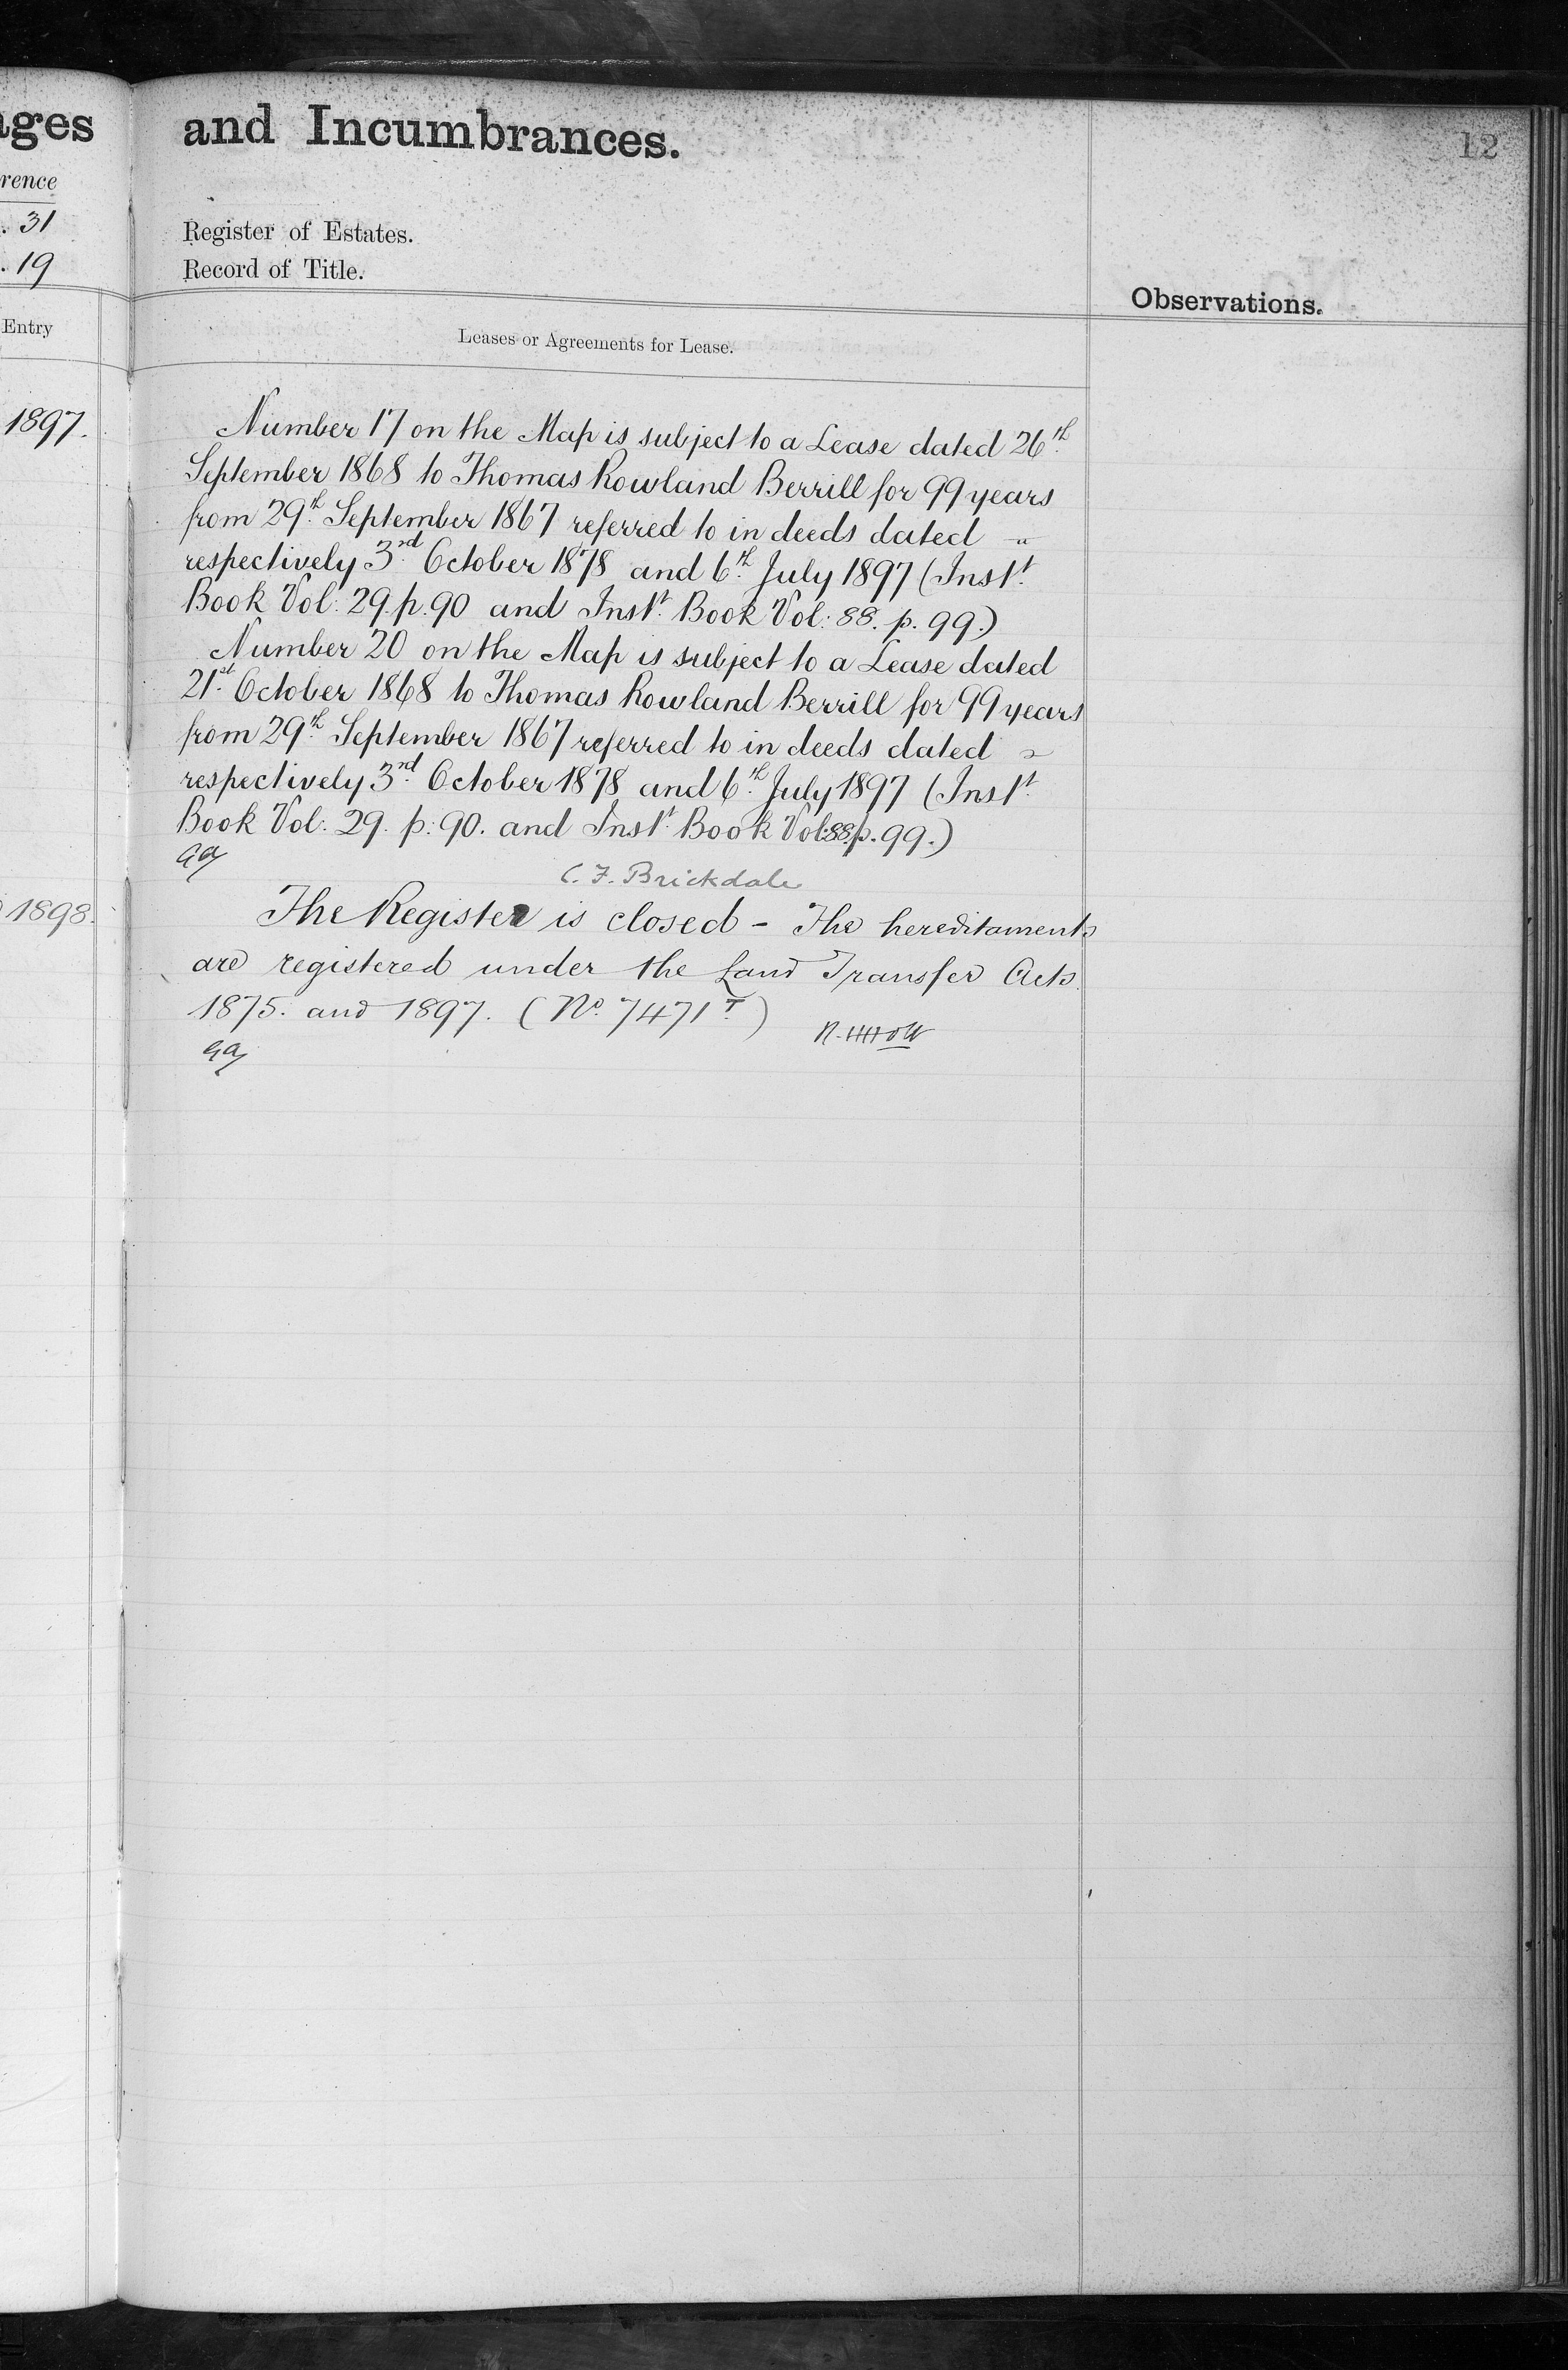 ages
rence
. 31
. 19
Entry
1897.
1898.
and Incumbrances.
12
Register of Estates.
Record of Title.
Observations.
Leases or Agreements for Lease.
Number 17 on the Map is subject to a Lease dated 26th
September 1868 to Thomas Rowland Berrill for 99 years
from 29th September 1867 referred to in deeds dated
respectively 3rd October 1878 and 6th July 1897 (Instt
Book Vol: 29. p. 90 and Instt Book Vol: 88. p. 99.)
Number 20 on the Map is subject to a Lease dated
21st October 1868 to Thomas Rowland Berrill for 99 years
from 29th September 1867 referred to in deeds dated
respectively 3rd October 1878 and 6th July 1897 (Instt
Book Vol: 29. p: 90. and Instt Book Vol: 88. p. 99.)
C. F. Brickdale
The Register is closed - The hereditaments
are registered under the Land Transfer Acts
1875. and 1897. (No. 7471T)